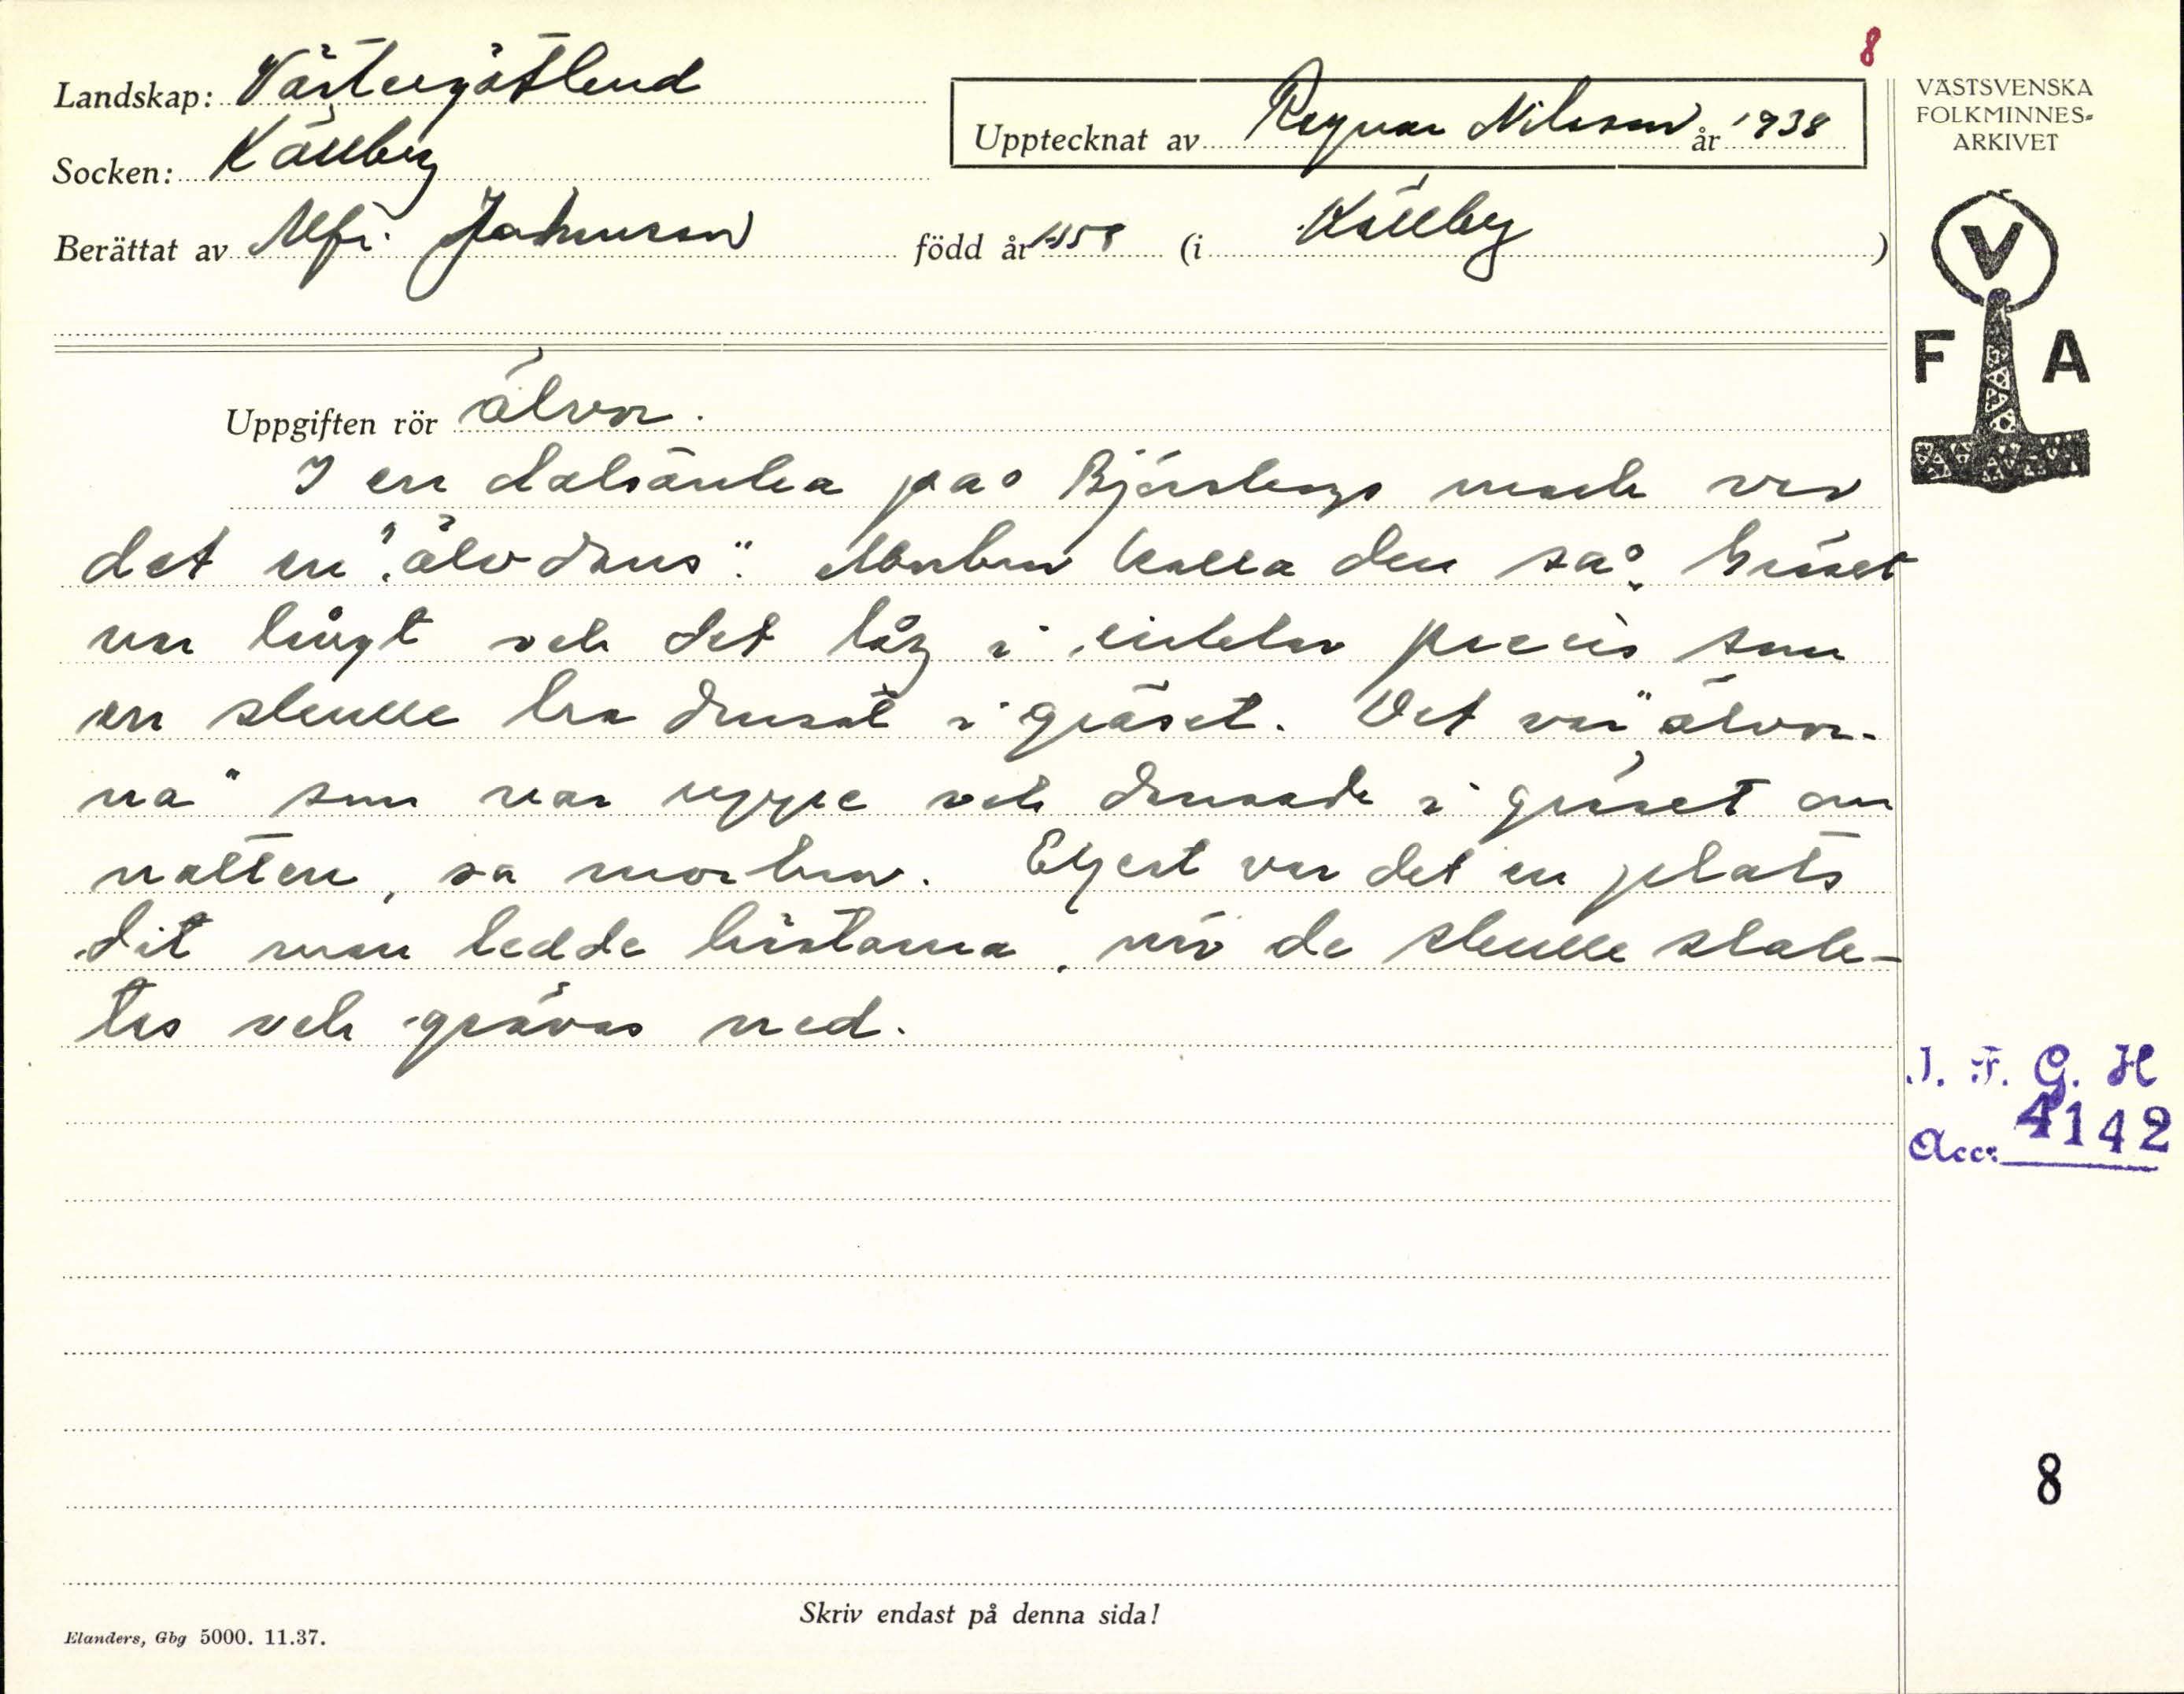 8
Landskap: Västergötland
Upptecknat av Ragnar Nilsson år 1938
VÄSTSVENSKA
FOLKMINNES-
ARKIVET
Socken: Källby
Berättat av Alfr. Johansson född år (i Källby)
V
F A
Uppgiften rör älvor.
I en dalsänka på mark var
det en "älvdans". Morbror kalla den så. Gräset
var långt och det låg i cirklar precis som
en skulle ha dansat i gräset. Det var "älvor-
na" som var uppe och dansade i gräset om
natten, sa morbror. Eljest var det en plats
dit man ledde hästarna, när de skulle slak-
tas och grävas ned.
I. F. G. H
Acc: 4142
8
Skriv endast på denna sida!
Elanders, Gbg 5000. 11.37.